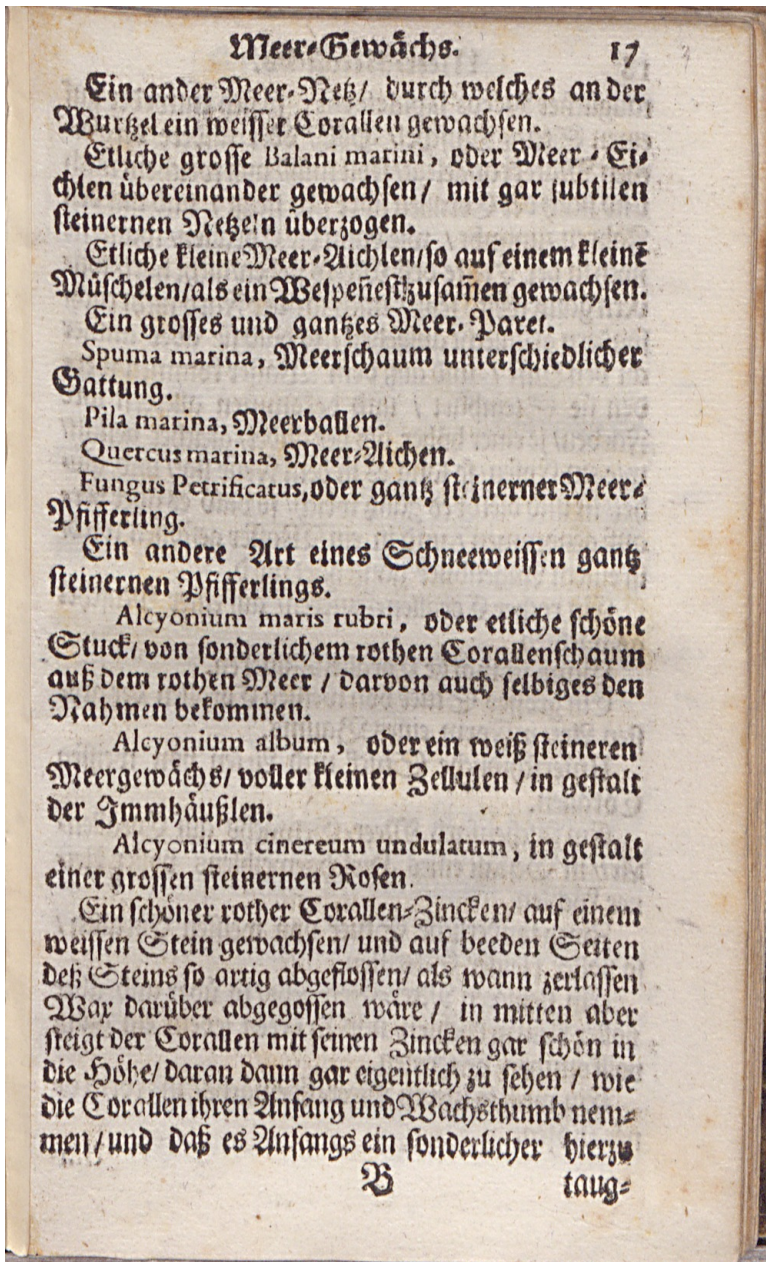 Meer-Gewächs. 17
Ein ander Meer-Netz/ durch welches an der
Wurtzel ein weisser Corallen gewachsen.
Etliche grosse Balani marini, oder Meer-Ei-
chlen übereinander gewachsen/ mit gar subtilen
steinernen Netzeln überzogen.
Etliche kleine Meer-Aichlen/ so auf einem kleinē
Müschelen/ als ein Wespeñest zusam̃en gewachsen.
Ein grosses und gantzes Meer-Paret.
Spuma marina, Meerschaum unterschiedlicher
Gattung.
Pila marina, Meerballen.
Quercus marina, Meer-Aichen.
Fungus Petrificatus, oder gantz steinerner Meer-
Pfifferling.
Ein andere Art eines Schneeweissen gantz
steinernen Pfifferlings.
Alcyonium maris rubri, oder etliche schöne
Stuck/ von sonderlichem rothen Corallenschaum
auß dem rothen Meer / darvon auch selbiges den
Nahmen bekommen.
Alcyonium album, oder ein weiß steineren
Meergewächs/ voller kleinen Zellulen / in gestalt
der Immhäußlen.
Alcyonium cinereum undulatum, in gestalt
einer grossen steinernen Rosen.
Ein schöner rother Corallen-Zincken/ auf einem
weissen Stein gewachsen/ und auf beeden Seiten
deß Steins so artig abgeflossen/ als wann zerlassen
Wax darüber abgegossen wäre / in mitten aber
steigt der Corallen mit seinen Zincken gar schön in
die Höhe/ daran dann gar eigentlich zu sehen / wie
die Corallen ihren Anfang und Wachsthumb nem-
men / und daß es Anfangs ein sonderlicher hierzu
B taug-